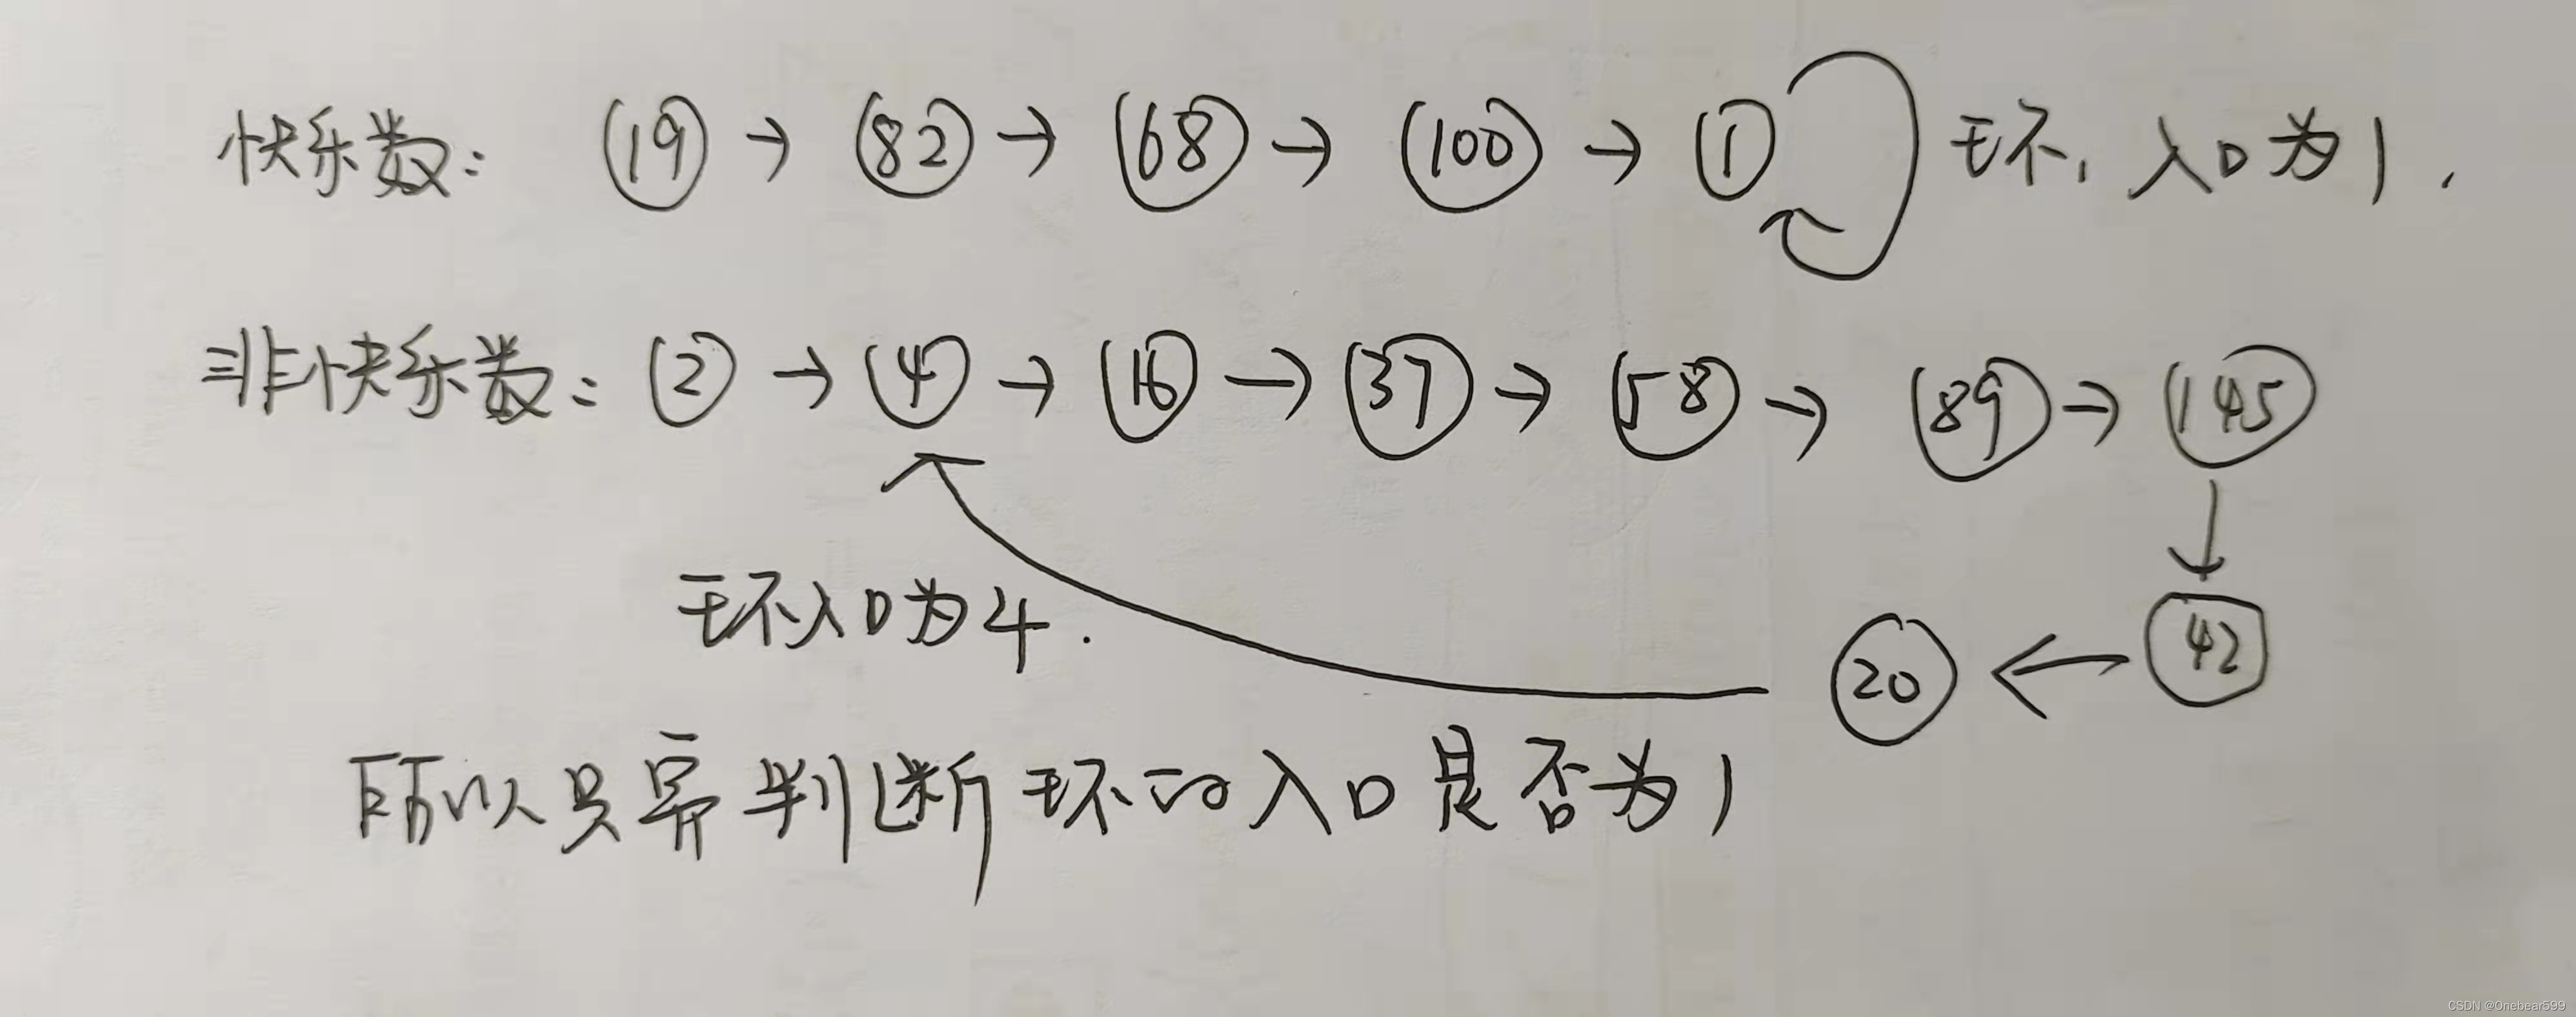 快乐数: 19 → 82 → 68 → 100 → 1 环, 入口为1.
非快乐数: 2 → 4 → 16 → 37 → 58 → 89 → 145
环入口为4.
20 ← 42
所以只需判断环的入口是否为1
CSDN @Onebear599